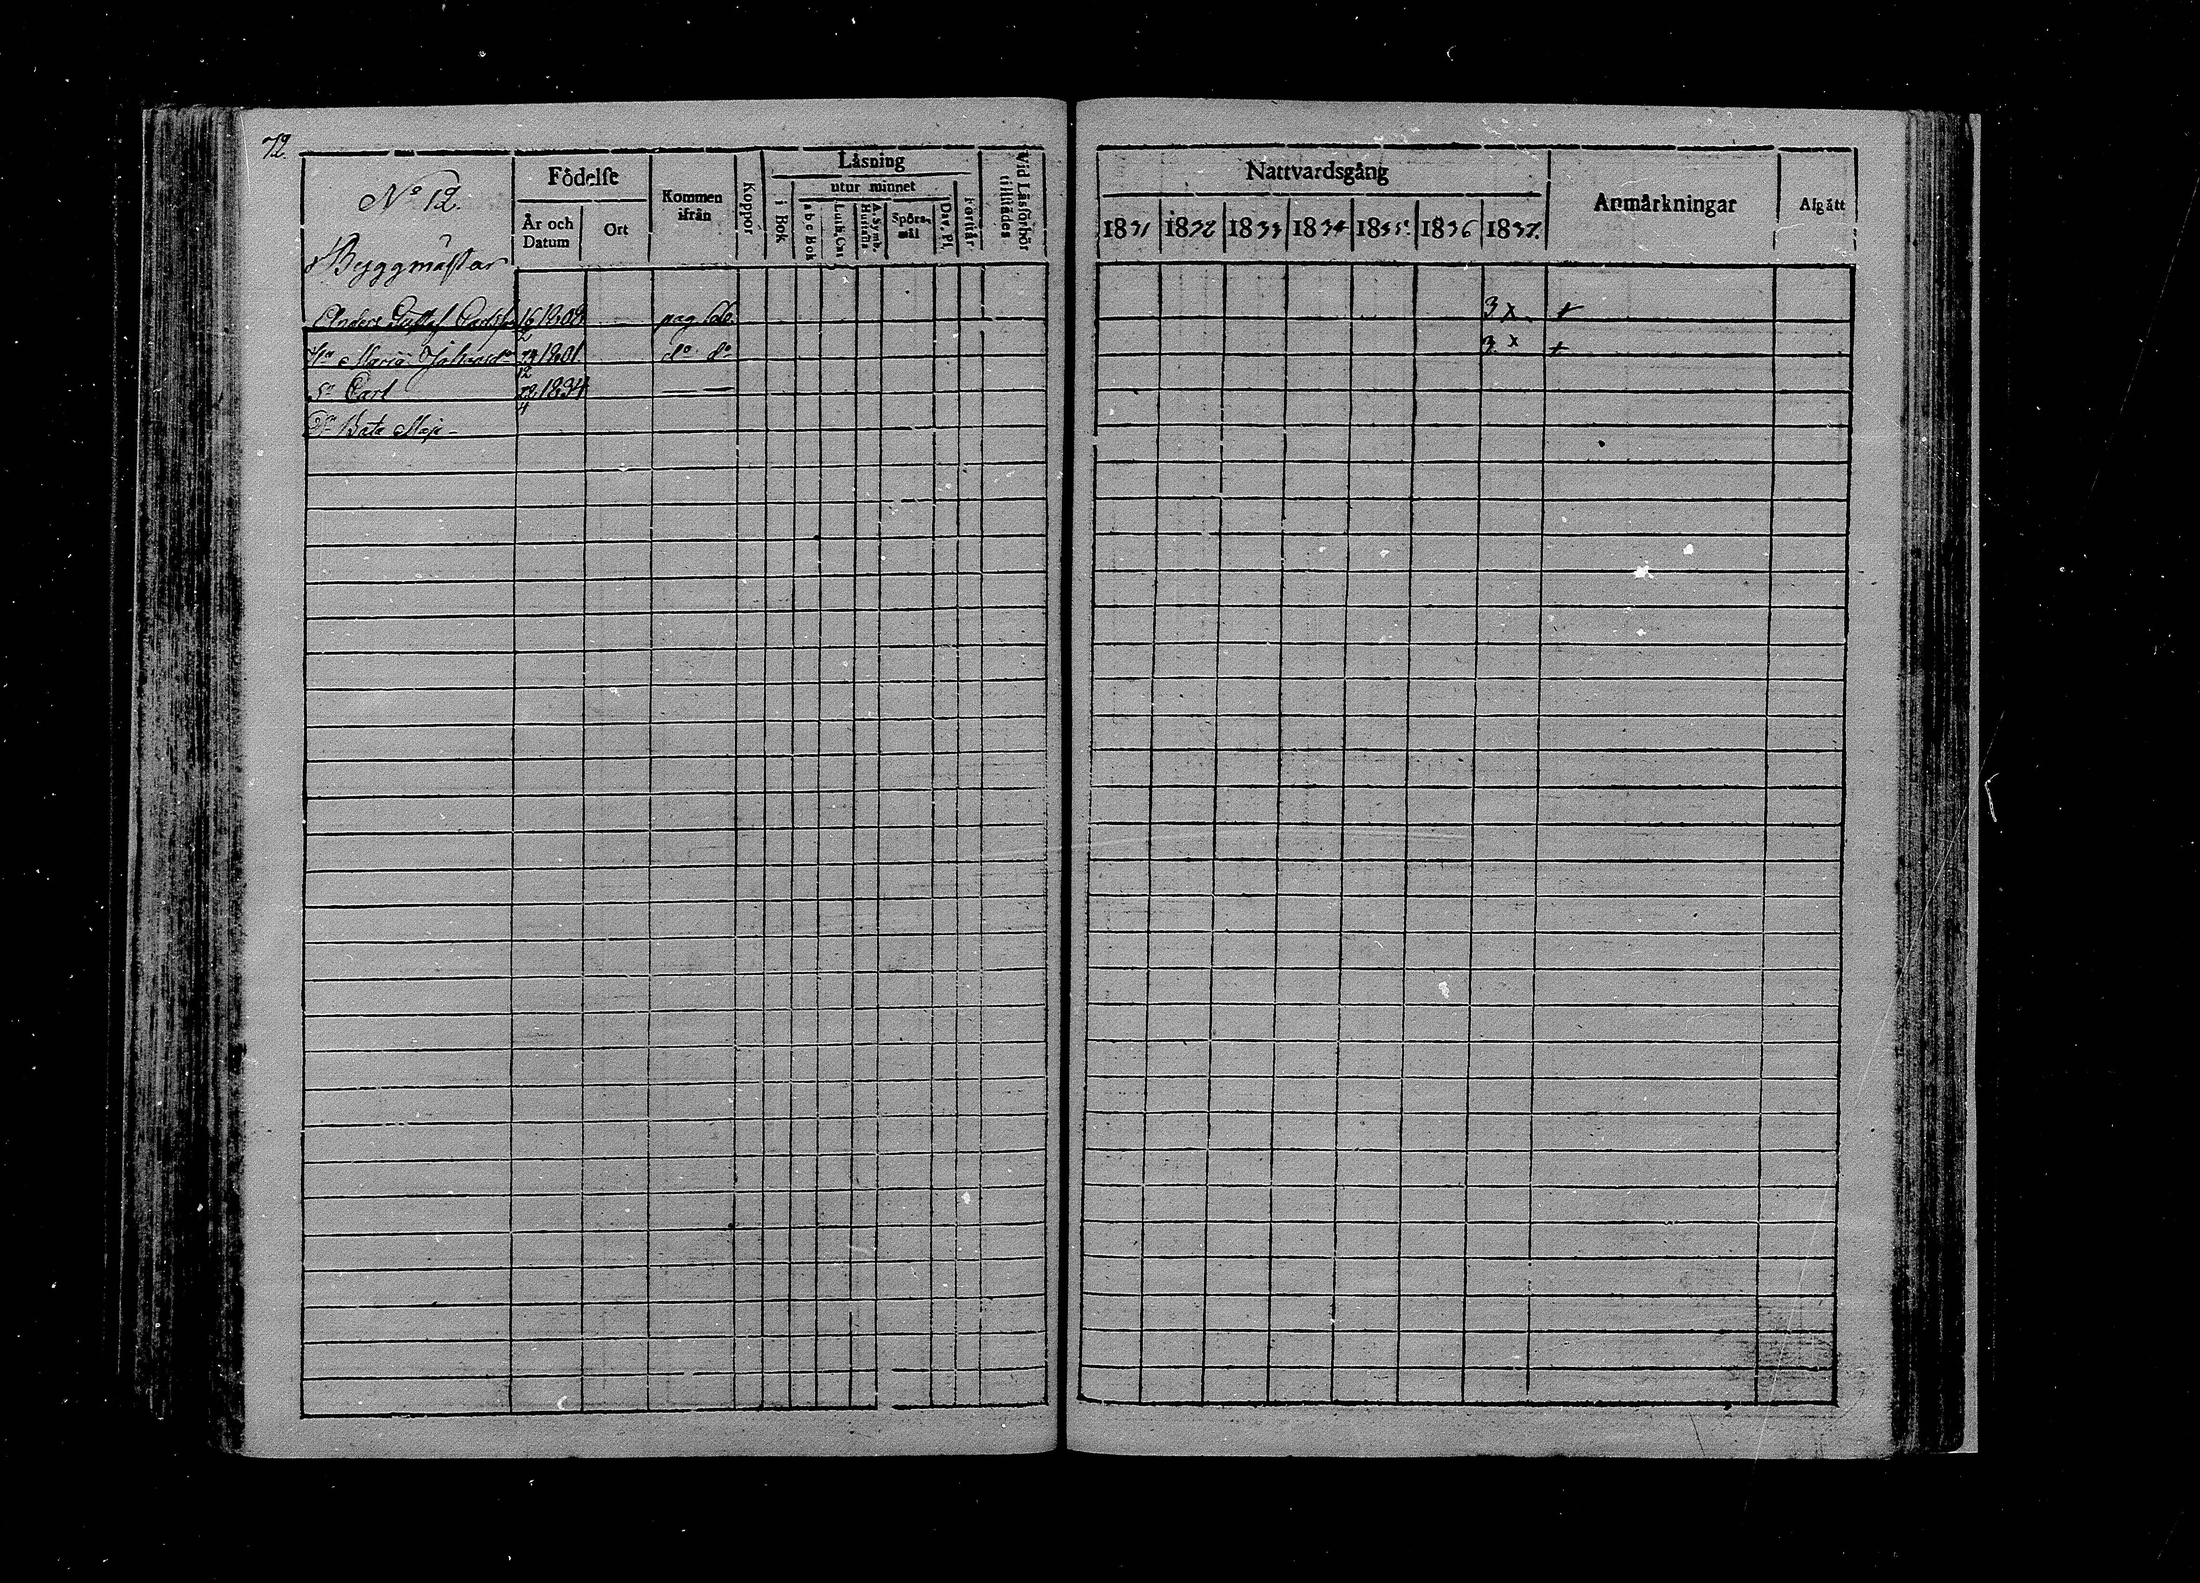 72.
No 12.
Byggmästar
Födelse
År och Datum
Ort
Kommen ifrån
Koppor
Läsning
i Bok
utur minnet
a b c Bok
Luth. Cat.
A. Symb. Hustafla
Spörsmål
Dav. Pf.
Förstår
Vid Läsförhör tillstädes
Nattvardsgång
1831 1832 1833 1834 1835 1836 1837.
Anmärkningar
Afgått
Anders Gustaf 16 pag 3 x +
Hu Maria 1801 do do 3 x +
12
Sn Carl 1834
4
Dr Maja